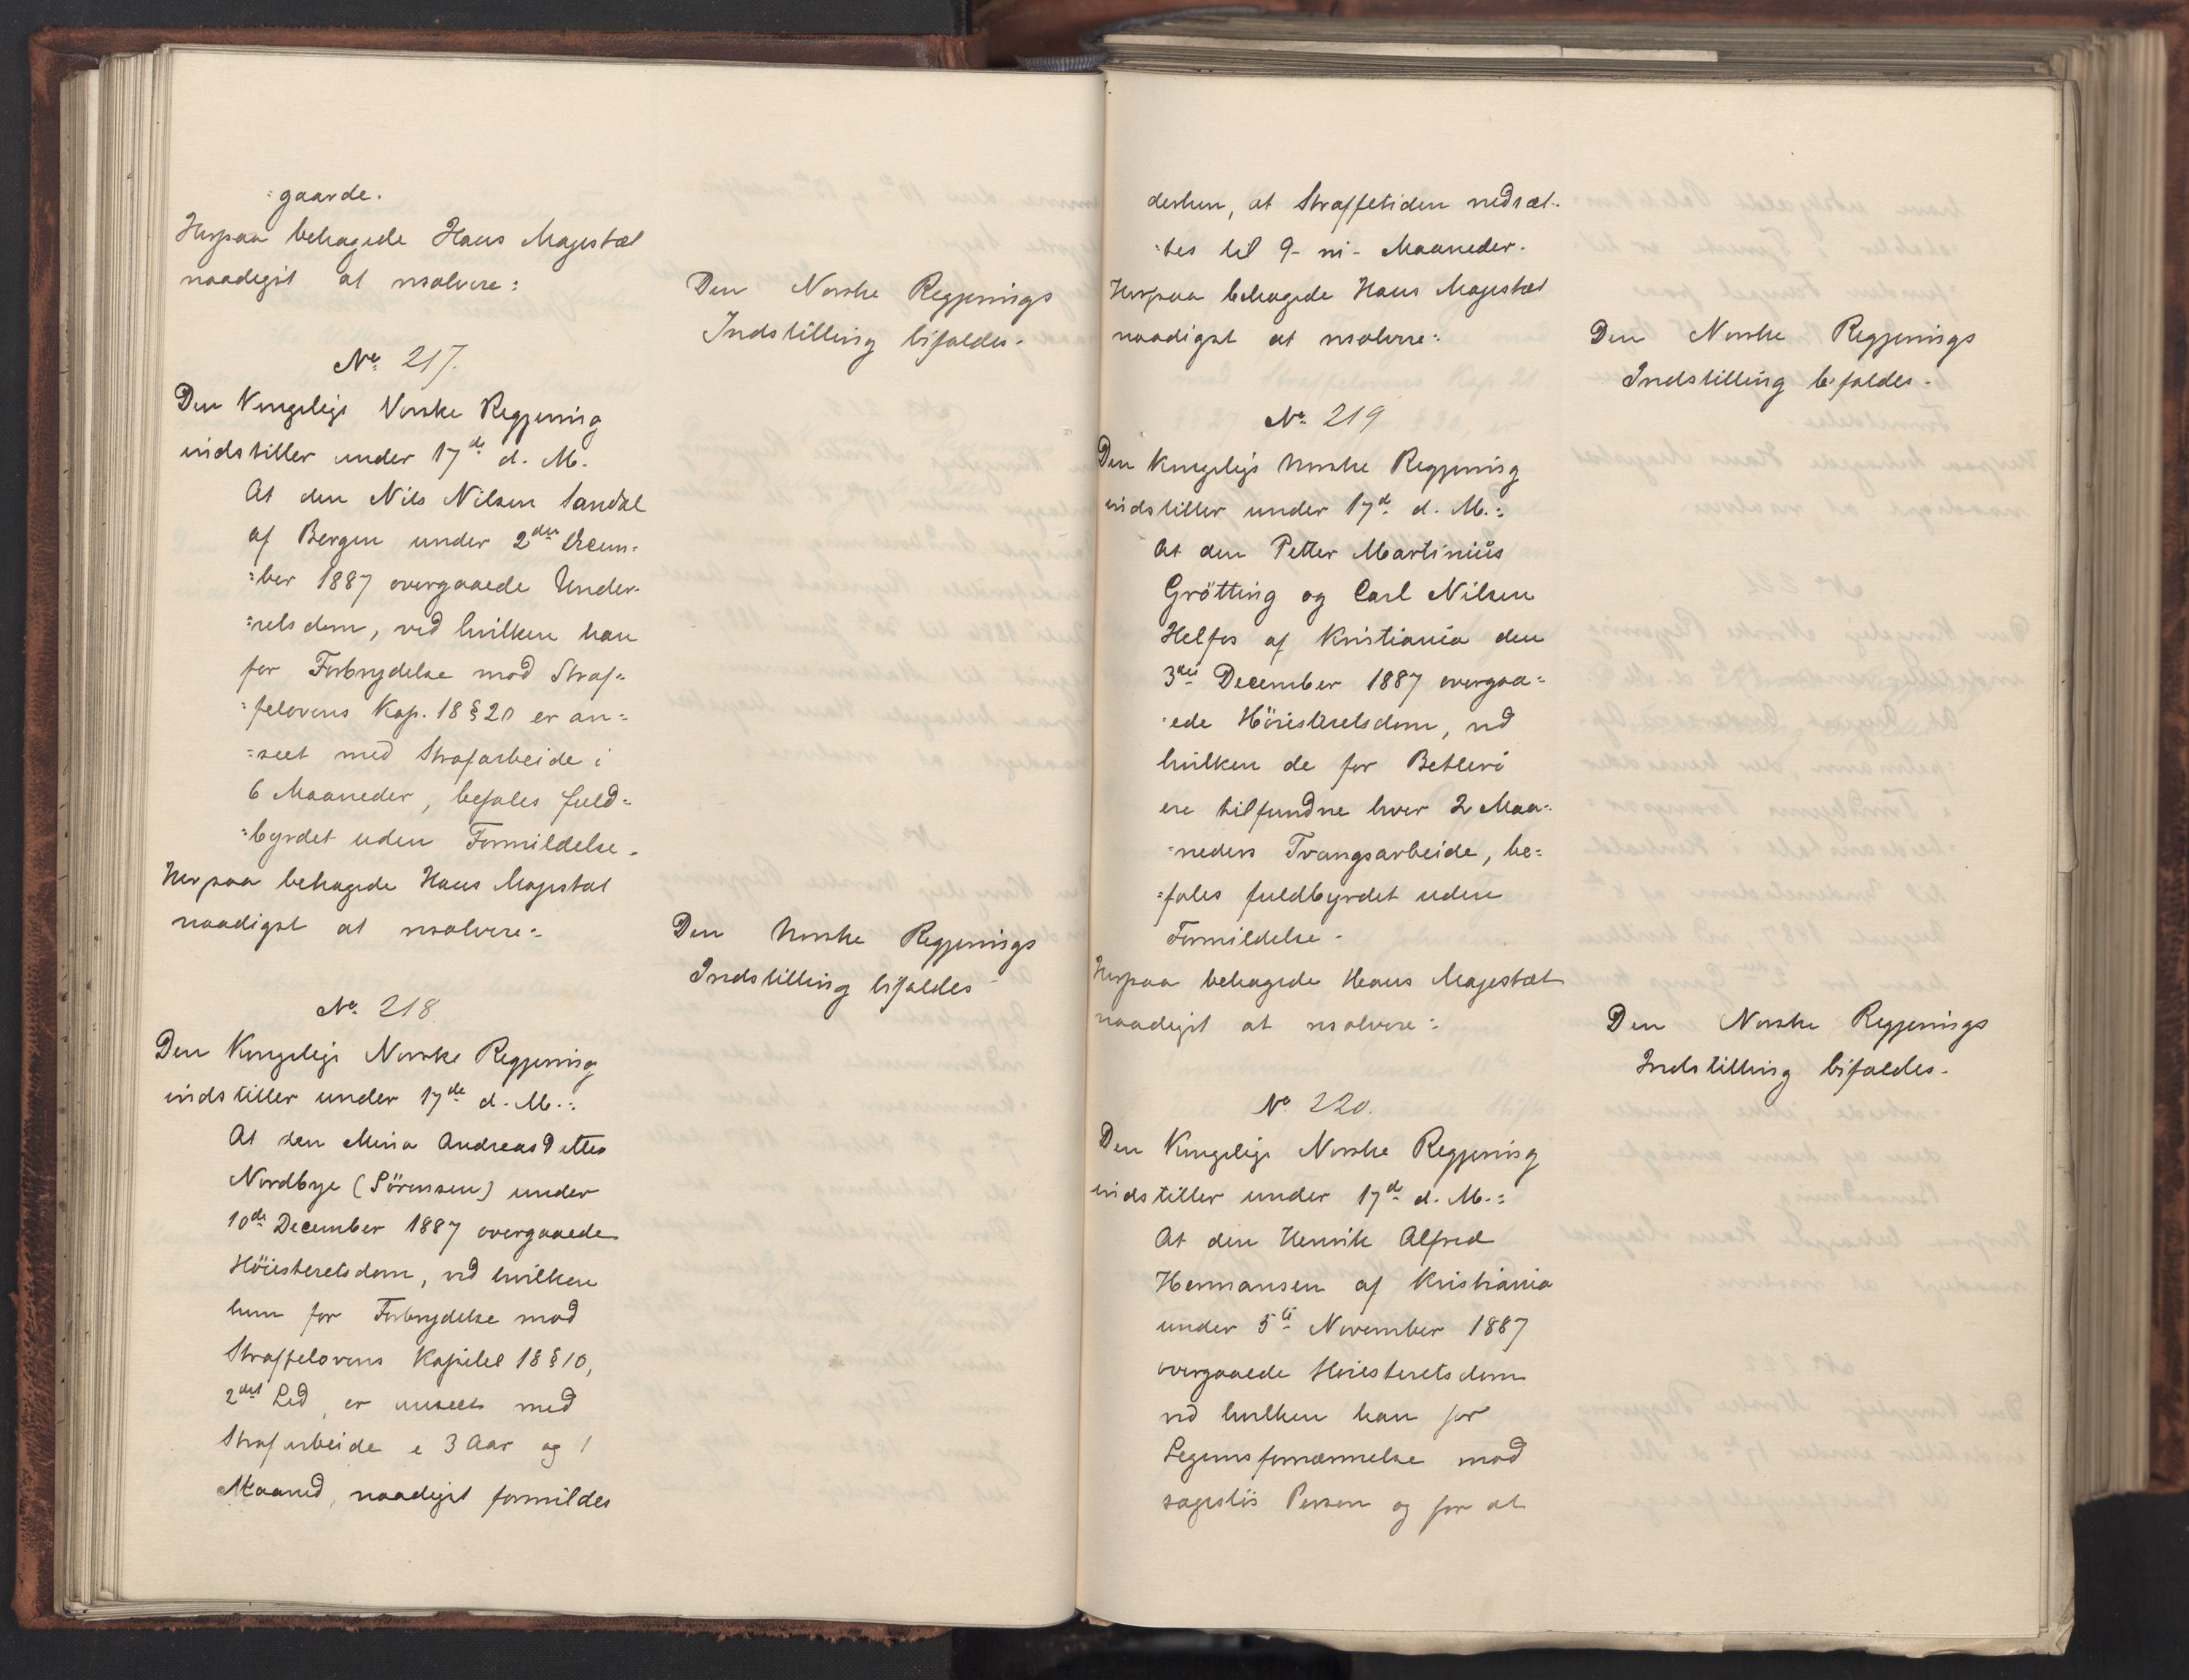 :gaarde.
Herpaa behagede Hans Majestæt
naadigst at resolvere:
Den Norske Regjerings
Indstilling bifaldes.
No. 217.
Den Kongelige Norske Regjering
indstiller under 17de d. M.
At den Nils Nilsen Sandal
af Bergen under 2den Decem:
:ber 1887 overgaaede Under-
:retsdom, ved hvilken han
for Forbrydelse mod Straf:
:felovens Kap. 18 § 20 er an:
:seet med Strafarbeide i
6 Maaneder, befales fuld:
:byrdet uden Formildelse.
Herpaa behagede Hans Majestæt
naadigst at resolvere:
Den Norske Regjerings
Indstilling bifaldes
No. 218.
Den Kongelige Norske Regjering
indstiller under 17de d. M.:
At den Mina Andreas Datter
Nordbye (Sörensen) under
10de December 1887 overgaaede
Höiesteretsdom, ved hvilken
hun for Forbrydelse mod
Straffelovens Kapitel 18 § 10,
2det Led, er anseet med
Strafarbeide i 3 Aar og 1
Maaned, naadigst formildes
derhen, at Straffetiden nedsæt-
:tes til 9 - ni - Maaneder.
Herpaa behagede Hans Majestæt
naadigst at resolvere:
Den Norske Regjerings
Indstilling bifaldes.
No. 219
Den Kongelige Norske Regjering
indstiller under 17de d. M.:
At den Petter Martinius
Grötting og Carl Nilsen
Helfos af Kristiania den
3die December 1887 overgaa:
:ede Höiesteretsdom, ved
hvilken de for Betleri
ere tilfundne hver 2 Maa:
:neders Tvangsarbeide, be:
:fales fuldbyrdet uden
Formildelse.
Herpaa behagede Hans Majestæt
naadigst at resolvere:
Den Norske Regjerings
Indstilling bifaldes.
No. 220.
Den Kongelige Norske Regjering
indstiller under 17de d. M.:
At den Henrik Alfred
Hermansen af Kristiania
under 5te November 1887
overgaaede Höiesteretsdom
ved hvilken han for
Legemsfornærmelse mod
sageslös Person og for at